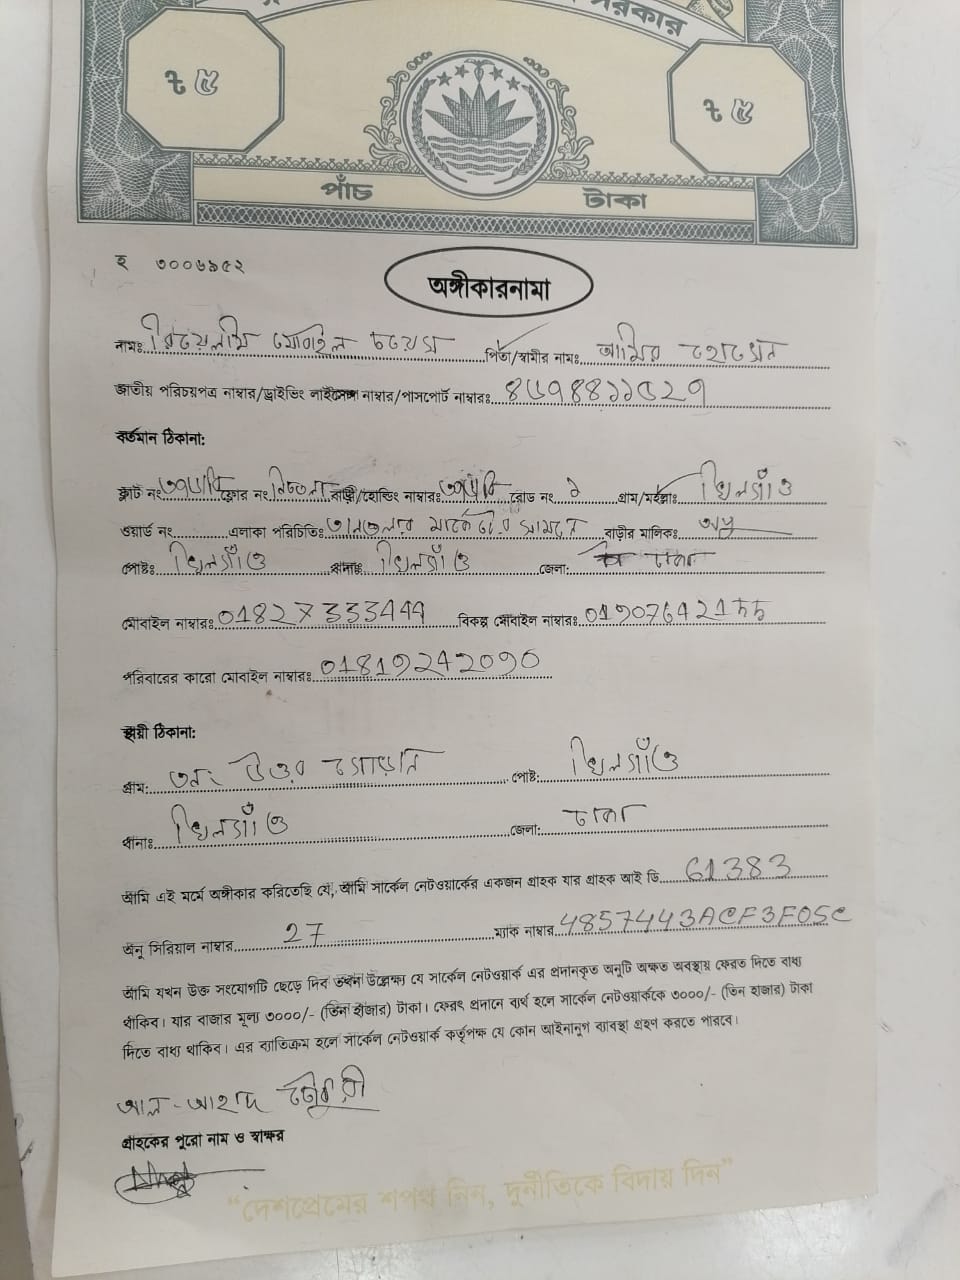 ৳ ৫
৳ ৫
পাঁচ টাকা
অঙ্গীকারনামা
নামঃ রিয়েলমি মোবাইল পিতা/স্বামীর নামঃ আমির হোসেন
জাতীয় পরিচয়পত্র নাম্বার/ড্রাইভিং লাইসেন্স নাম্বার/পাসপোর্ট নাম্বারঃ
বর্তমান ঠিকানা:
ফ্লাট নং ফ্লোর নং নিচতলা বাড়ী/হোল্ডিং নাম্বারঃ রোড নং ১ গ্রাম/মহল্লাঃ খিলগাঁও
ওয়ার্ড নং এলাকা পরিচিতিঃ মার্কেটের সামনে বাড়ীর মালিকঃ
পোষ্টঃ খিলগাঁও থানাঃ খিলগাঁও জেলা: ঢাকা
মোবাইল নাম্বারঃ 01827333444 বিকল্প মোবাইল নাম্বারঃ
পরিবারের কারো মোবাইল নাম্বারঃ
স্থায়ী ঠিকানা:
গ্রাম: উত্তর গোড়ান পোষ্ট: খিলগাঁও
থানাঃ খিলগাঁও জেলা: ঢাকা
আমি এই মর্মে অঙ্গীকার করিতেছি যে, আমি সার্কেল নেটওয়ার্কের একজন গ্রাহক যার গ্রাহক আই ডি 61383
অনু সিরিয়াল নাম্বার 27 ম্যাক নাম্বার 4857443ACF3F05C
আমি যখন উক্ত সংযোগটি ছেড়ে দিব তখন উল্লেক্ষ্য যে সার্কেল নেটওয়ার্ক এর প্রদানকৃত অনুটি অক্ষত অবস্থায় ফেরত দিতে বাধ্য
থাকিব। যার বাজার মূল্য ৩০০০/- (তিন হাজার) টাকা। ফেরৎ প্রদানে ব্যর্থ হলে সার্কেল নেটওয়ার্ককে ৩০০০/- (তিন হাজার) টাকা
দিতে বাধ্য থাকিব। এর ব্যতিক্রম হলে সার্কেল নেটওয়ার্ক কর্তৃপক্ষ যে কোন আইনানুগ ব্যবস্থা গ্রহণ করতে পারবে।
আল-আহাদ চৌধুরী
গ্রাহকের পুরো নাম ও স্বাক্ষর
“দেশপ্রেমের শপথ নিন, দুর্নীতিকে বিদায় দিন”